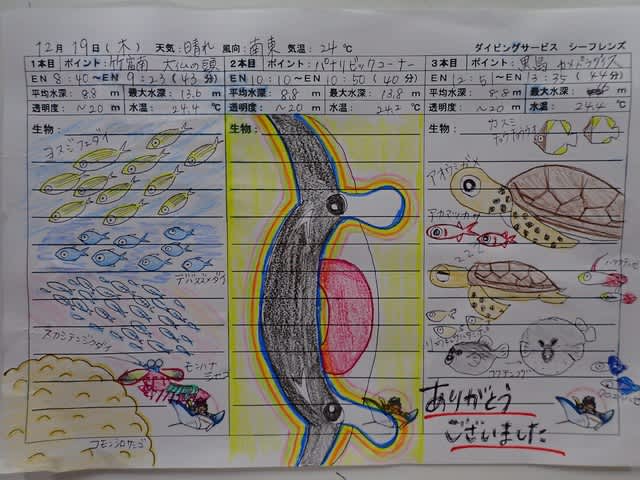 12月 19日(木) 天気:晴れ 風向:南東 気温:24℃ ダイビングサービス シーフレンズ
1本目 ポイント:竹富南 大仏の頭
EN 8:40～EN 9:23(43分)
平均水深: 9.8 m 最大水深: 13.6 m
透明度: ～20 m 水温: 24.4℃
生物:
ヨスジフエダイ
デバスズメダイ
スカシテンジクダイ
モンハナシャコ
コモンシコロサンゴ
2本目 ポイント:パナリビックコーナー
EN 10:10～EN 10:50(40分)
平均水深: 8.8 m 最大水深: 13.8 m
透明度: ～20 m 水温: 24.2℃
生物:
3本目 ポイント:黒島 カメパラダイス
EN 12:51～EN 13:35(44分)
平均水深: 8.8 m 最大水深: m
透明度: ～20 m 水温: 24.4℃
生物:
カスミ
チョウチョウウオ
アオウミガメ
アカマツカサ
ハタタテハゼ
コクテンフグ
ありがとう
ございました